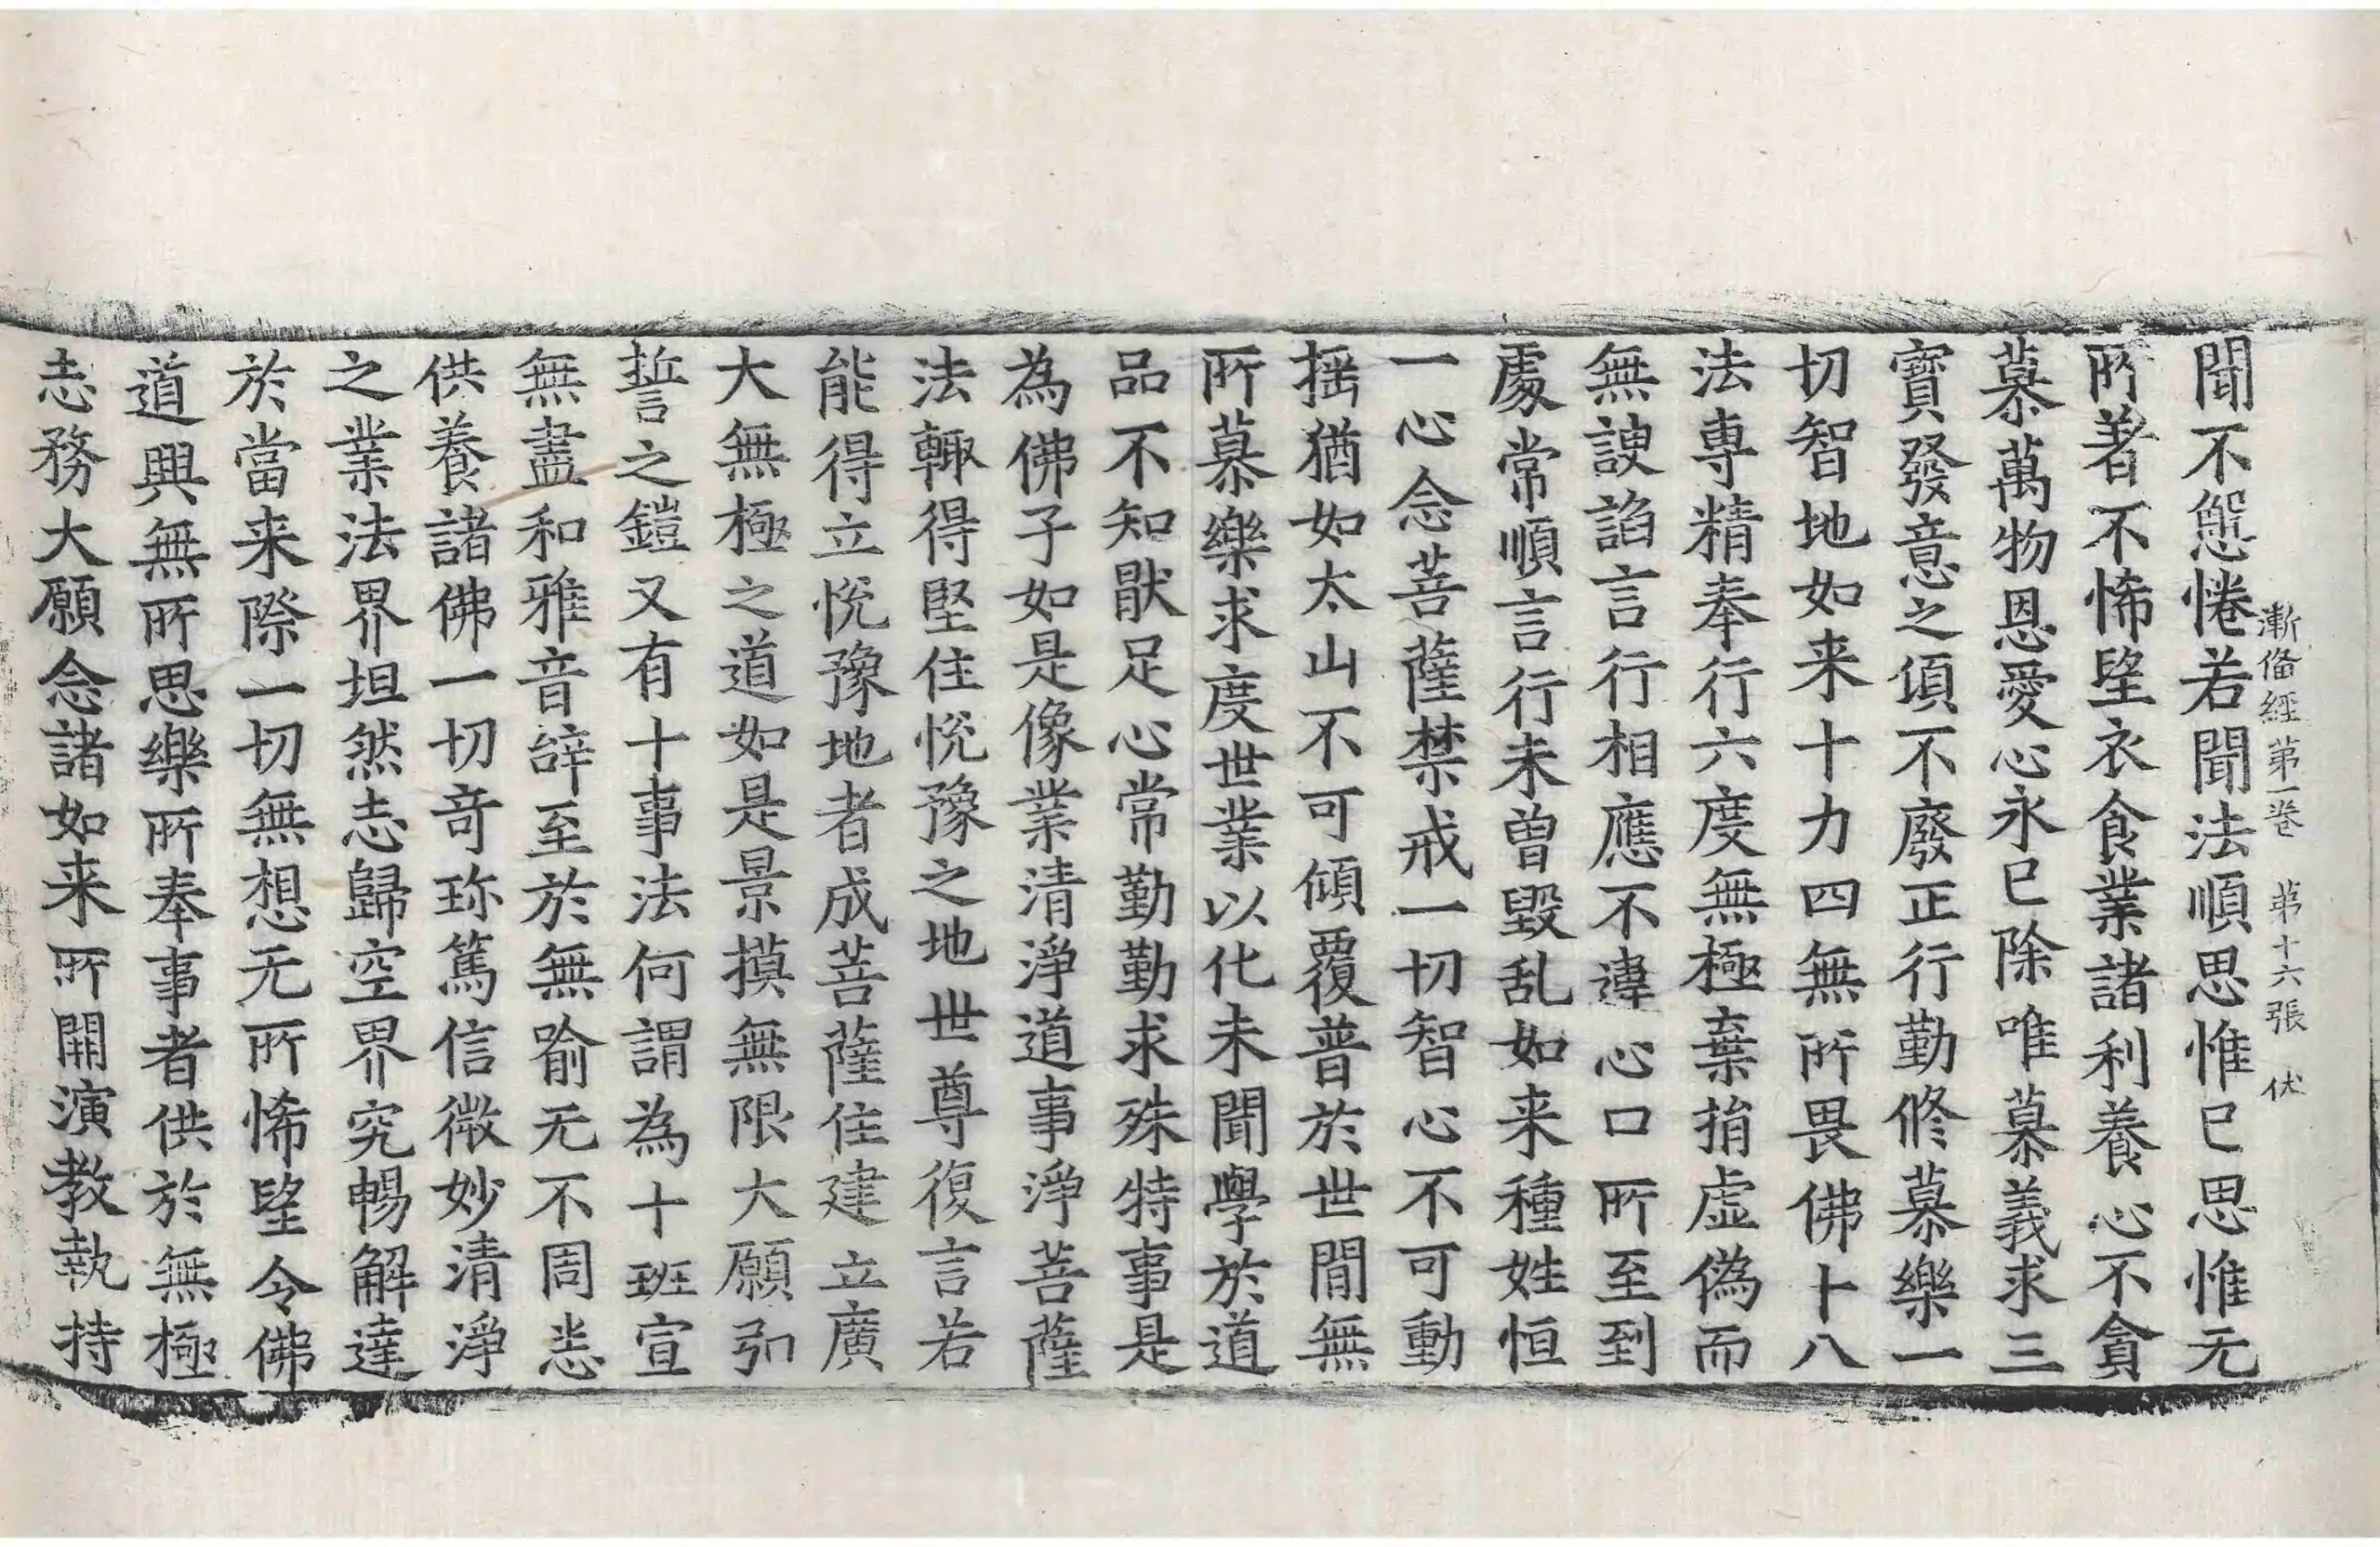 漸俻經第一卷　第十六張　伏
聞不惓惓若聞法順思惟已思惟无
所著不悕望衣食業諸利養心不貪
慕萬物恩愛心永已除唯慕義求三
寶發意之傾不廢正行勤修慕樂一
切智地如来十力四無所畏佛十八
法專精奉行六度無極棄捐虛偽而
無諛諂言行相應不違心口所至到
處常順言行未曾毀乱如来種姓恒
一心念菩薩禁戒一切智心不可動
揺猶如太山不可傾覆普於世間無
所慕樂求度世業以化未聞學於道
品不知猒足心常勤勤求殊特事是
為佛子如是像業清淨道事淨菩薩
法輙得堅住恱豫之地世尊復言若
能得立恱豫地者成菩薩住建立廣
大無極之道如是景摸無限大願弘
誓之鎧又有十事法何謂為十班宣
無盡和雅音辝至於無喻无不周悉
供養諸佛一切奇珎篤信微妙清淨
之業法界坦然志歸空界究暢解達
於當来際一切無想无所悕望令佛
道興無所思樂所奉事者供於無極
志務大願念諸如来所開演教執持